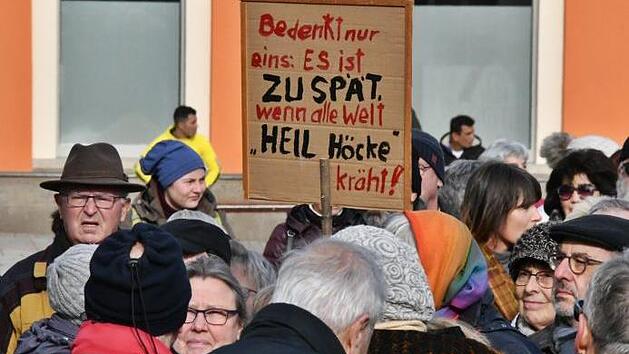 Bedenkt nur
eins: ES ist
ZU SPÄT,
wenn alle Welt
„HEIL Höcke"
kräht!